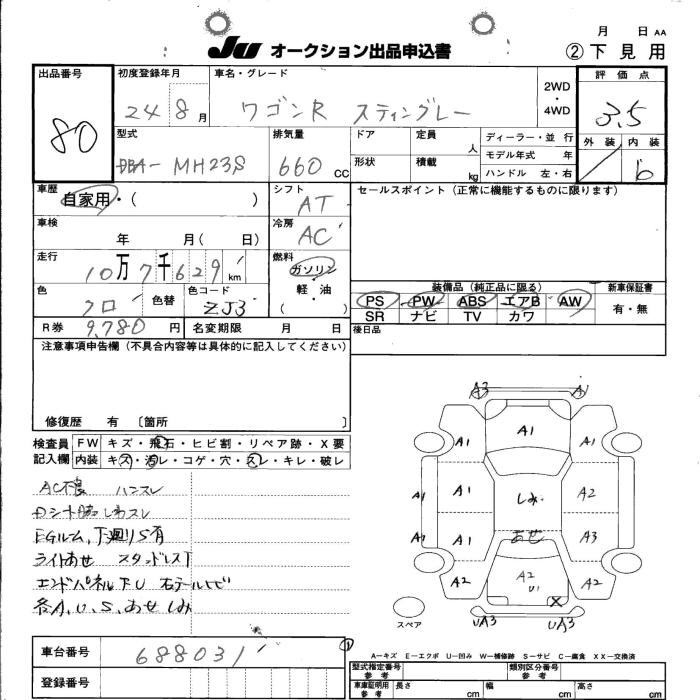 JU オークション出品申込書
月 日 AA
② 下見用
出品番号
80
初度登録年月
24 8 月
車名・グレード
ワゴンR スティングレー
2WD
・
4WD
評価点
3.5
外装 内装
b
型式
DBA- MH23S
排気量
660 CC
ドア
形状
定員 人
積載 kg
ディーラー・並行
モデル年式 年
ハンドル 左・右
車歴
自家用・( )
シフト
AT
セールスポイント (正常に機能するものに限ります)
車検
年 月( 日)
冷房
AC
走行
10万7千629 km
燃料
ガソリン
・
軽・油
( )
色
クロ
色替
色コード
ZJ3
装備品 (純正品に限る)
新車保証書
PS PW ABS エアB AW
SR ナビ TV カワ
有・無
R券 9,780 円
名変期限 月 日
後日品
注意事項申告欄 (不具合内容等は具体的に記入してください)
修復歴 有 〔箇所 〕
検査員
記入欄
FW キズ・飛石・ヒビ割・リペア跡・X要
内装 キズ・汚レ・コゲ・穴・スレ・キレ・破レ
AC不良 ハンスレ
Dシート脇しわスレ
EGルーム,下廻りS有
ライトあせ スタッドレス
エンドパネル下U 右テールヒビ
各A,U,S,あせ しみ
A3 A1
A1 A1 A1
A1 A1 しみ A2
A1 A1 あせ A3
A2 A2 U1 A2
X
UA3 UA3
スペア
A-キズ E-エクボ U-凹み W-補修跡 S-サビ C-腐食 XX-交換済
車台番号
688031
登録番号
型式指定番号
参考
類別区分番号
参考
車庫証明用
参考
長さ cm
幅 cm
高さ cm